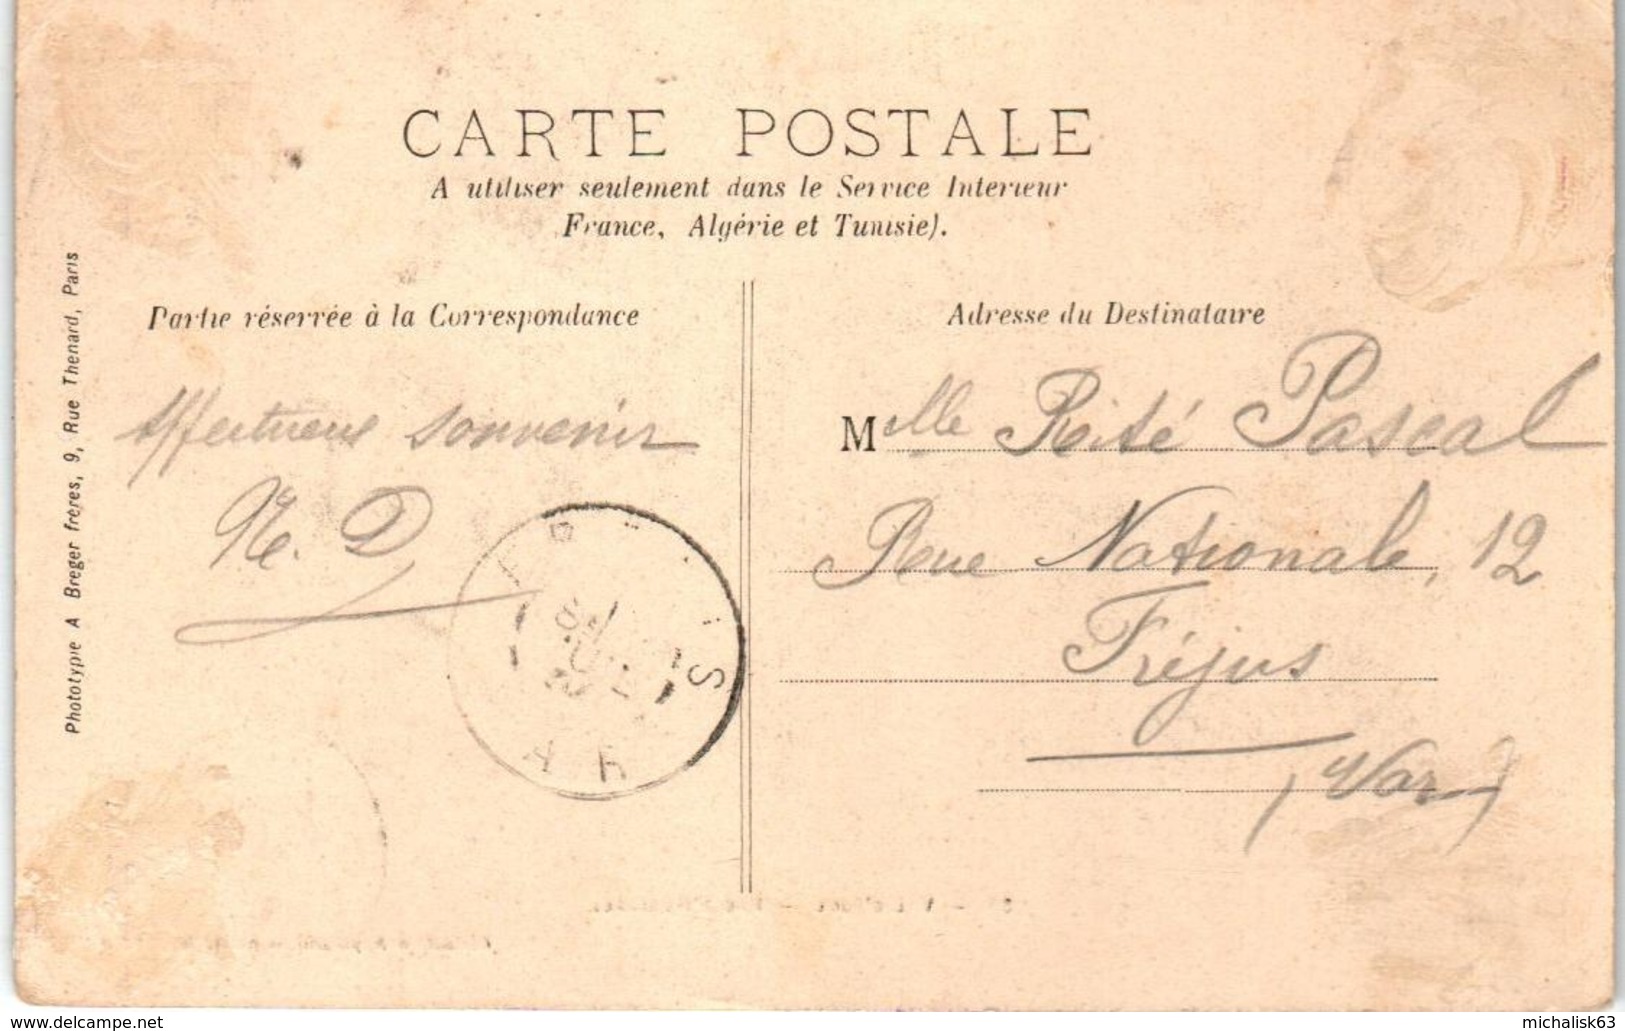 CARTE POSTALE
A utiliser seulement dans le Service Interieur
France, Algérie et Tunisie).
Partie réservée à la Correspondance
Adresse du Destinataire
Phototypie A Breger frères, 9, Rue Thenard, Paris
Affectueux souvenir
D
Mlle Rité Pascal
Rue Nationale, 12
Fréjus
(Var)
www.delcampe.net
michalisk63